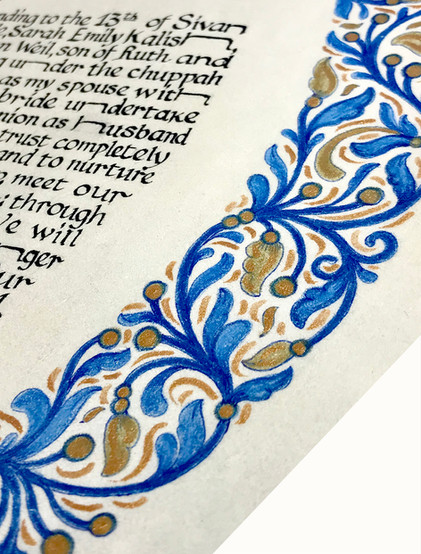 nding to the 13th of Sivan
le, Sarah Emily Kalish
on Weil, son of Ruth and
g under the chuppah
as my spouse with
bride undertake
nion as husband
trust completely
and to nurture
meet our
through
We will
nger
ur